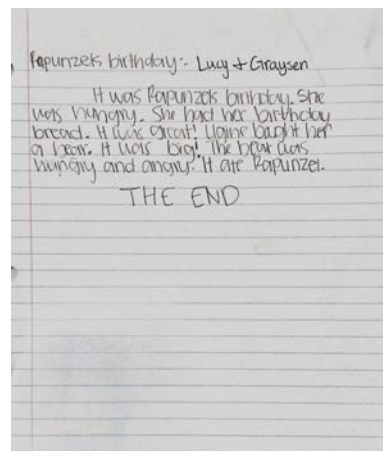 Rapunzels birthday:- Lucy + Graysen
It was Rapunzels birthday. She
was hungry. She had her birthday
bread. It was great! Ugine bought her
a bear. It was big! The bear was
hungry and angry. It ate Rapunzel.
THE END